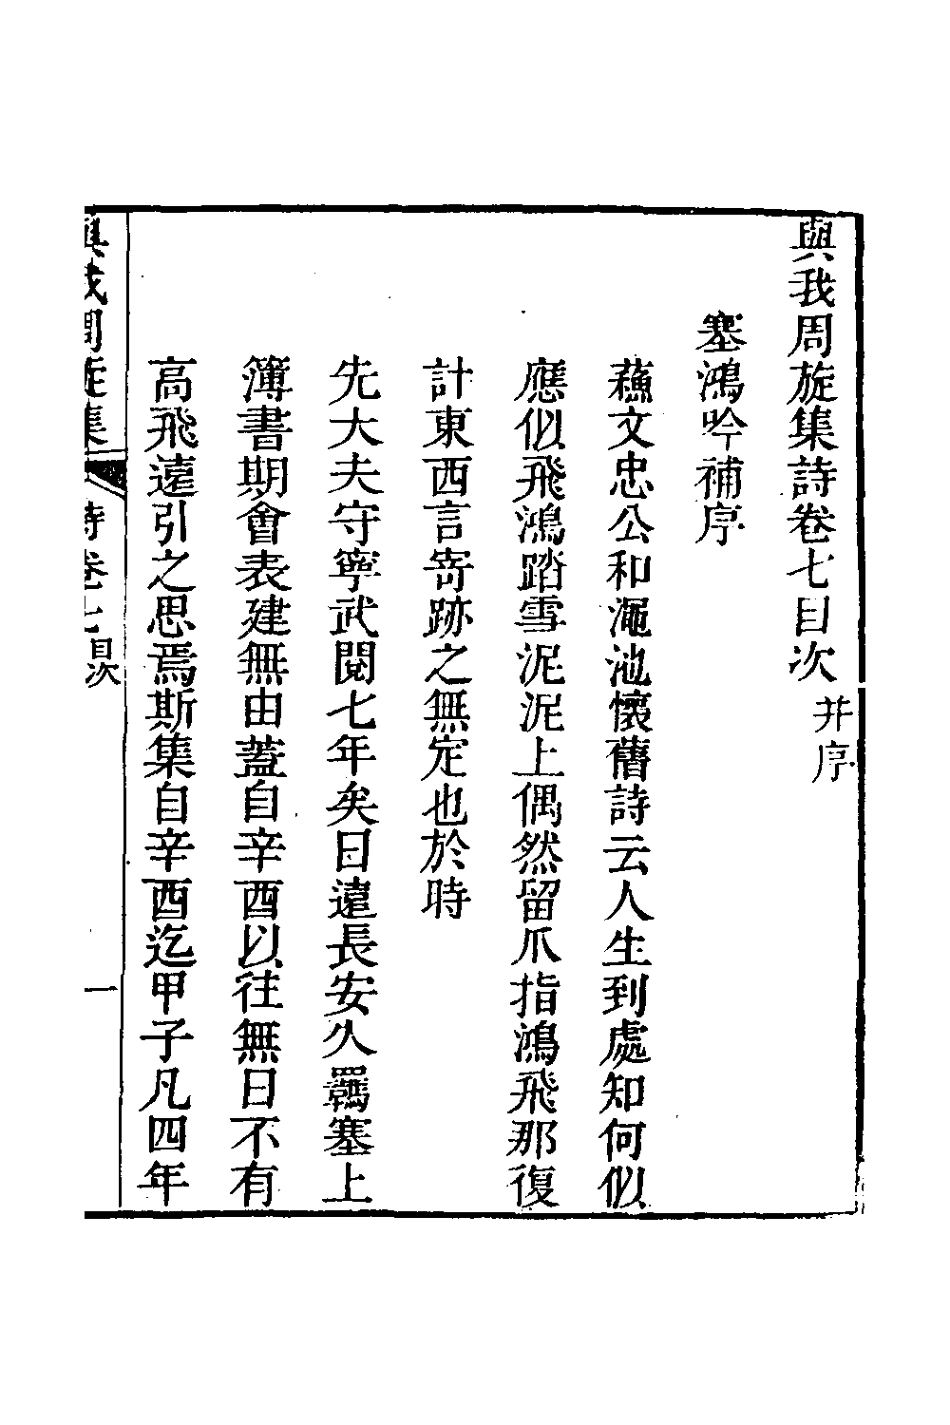 與我周旋集詩卷七目次 并序
塞鴻吟補序
蘓文忠公和澠池懷舊詩云人生到處知何似
應似飛鴻踏雪泥泥上偶然留爪指鴻飛那復
計東西言寄跡之無定也於時
先大夫守寧武閱七年矣日遠長安久羈塞上
簿書期會表建無由蓋自辛酉以往無日不有
高飛遠引之思焉斯集自辛酉迄甲子凡四年
與我周旋集 詩卷七 目次 一